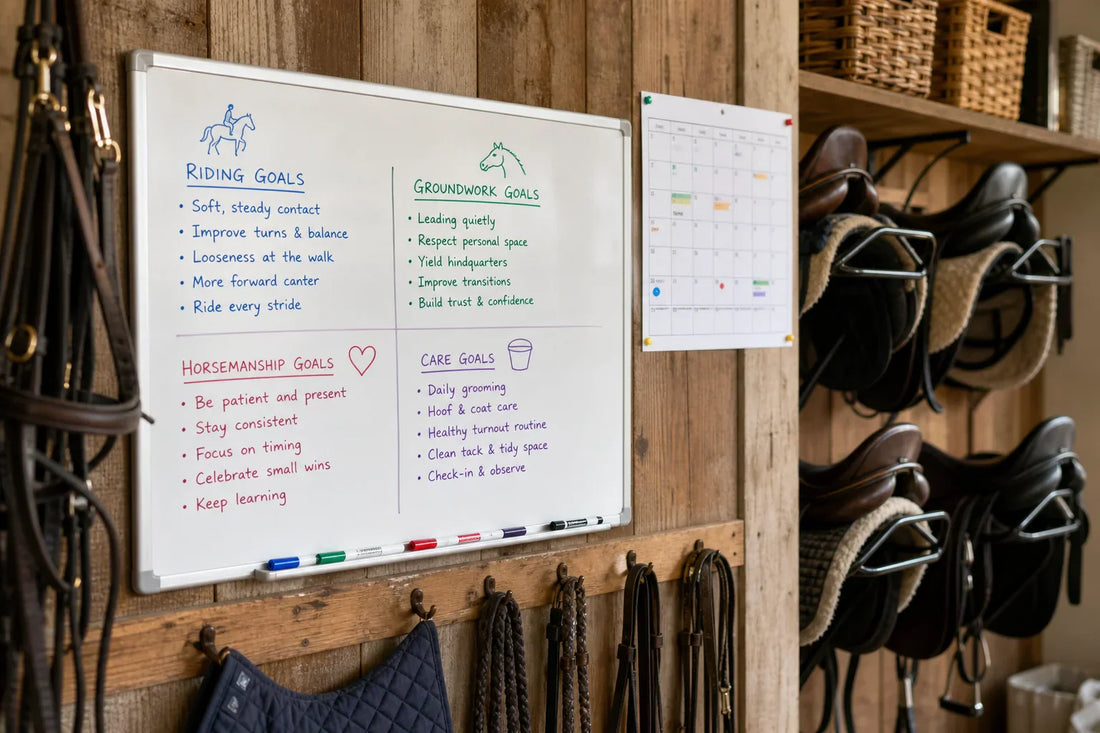 RIDING GOALS
• Soft, steady contact
• Improve turns & balance
• Looseness at the walk
• More forward canter
• Ride every stride
GROUNDWORK GOALS
• Leading quietly
• Respect personal space
• Yield hindquarters
• Improve transitions
• Build trust & confidence
HORSEMANSHIP GOALS
• Be patient and present
• Stay consistent
• Focus on timing
• Celebrate small wins
• Keep learning
CARE GOALS
• Daily grooming
• Hoof & coat care
• Healthy turnout routine
• Clean tack & tidy space
• Check-in & observe